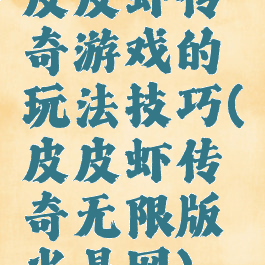 皮皮虾传
奇游戏的
玩法技巧(
皮皮虾传
奇无限版
水晶网)